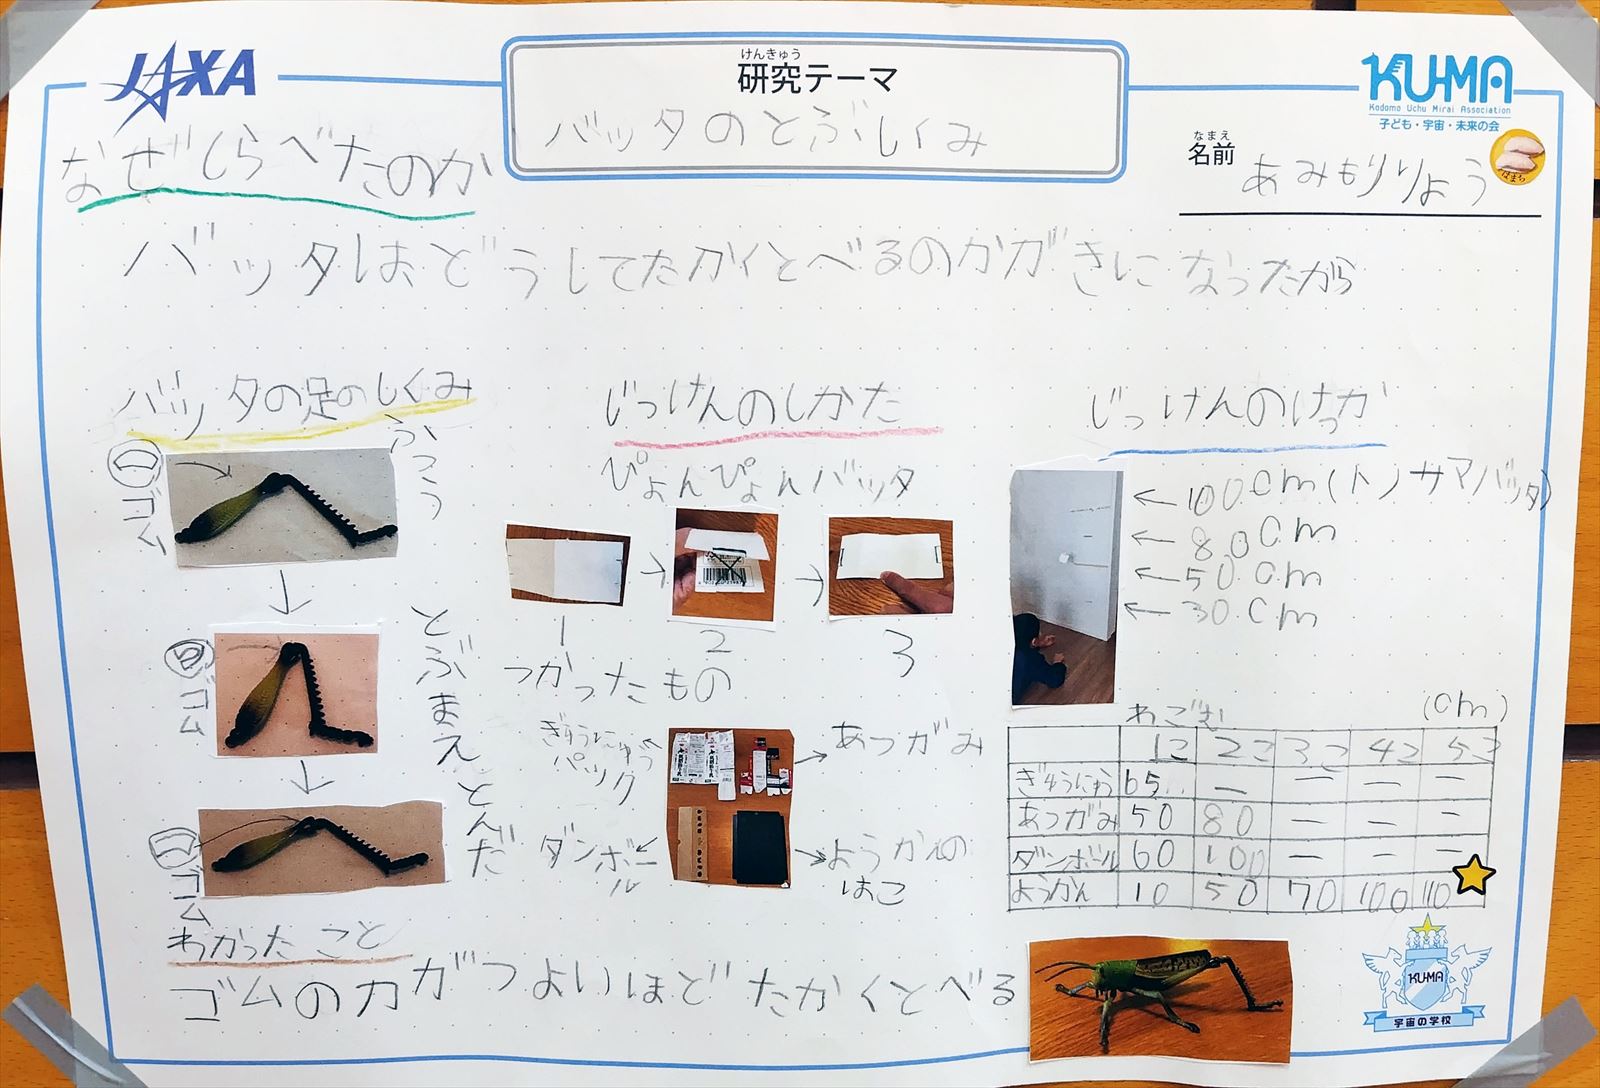 JAXA
けんきゅう
研究テーマ
バッタのとぶしくみ
KUMA
Kodomo Uchu Mirai Association
子ども・宇宙・未来の会
なまえ
名前
あみもりりょう
なぜしらべたのか
バッタはどうしてたかくとべるのかがきになったから
バッタの足のしくみ
① ゴム
ふつう
② ゴム
とぶまえ
ゴム
とんだ
じっけんのしかた
ぴょんぴょんバッタ
1
2
3
つかったもの
ぎゅうにゅうパック
あつがみ
ダンボール
ようかんのはこ
じっけんのけっか
←100cm(トノサマバッタ)
←80cm
←50cm
←30cm
わごむ
(cm)
1こ 2こ 3こ 4こ 5こ
ぎゅうにゅう 65 ー ー ー ー
あつがみ 50 80 ー ー ー
ダンボール 60 100 ー ー ー
ようかん 10 50 70 100 110
わかったこと
ゴムの力がつよいほどたかくとべる
KUMA
宇宙の学校